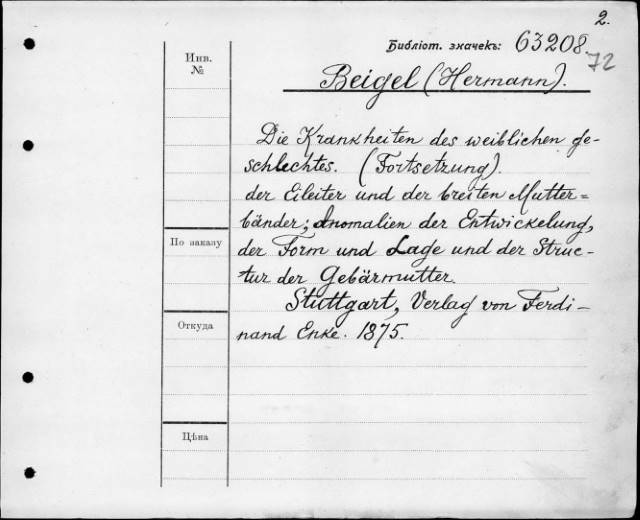 2.
Библіот. значекъ: 63208.
72
Инв.
№
Beigel (Hermann).
Die Krankheiten des weiblichen ge-
schlechtes. (Fortsetzung).
der Eileiter und der breiten Mutter=
bänder; Anomalien der Entwickelung,
По заказу
der Form und Lage und der Struc-
tur der Gebärmutter.
Stuttgart, Verlag von Ferdi-
Откуда
nand Enke. 1875.
Цѣна